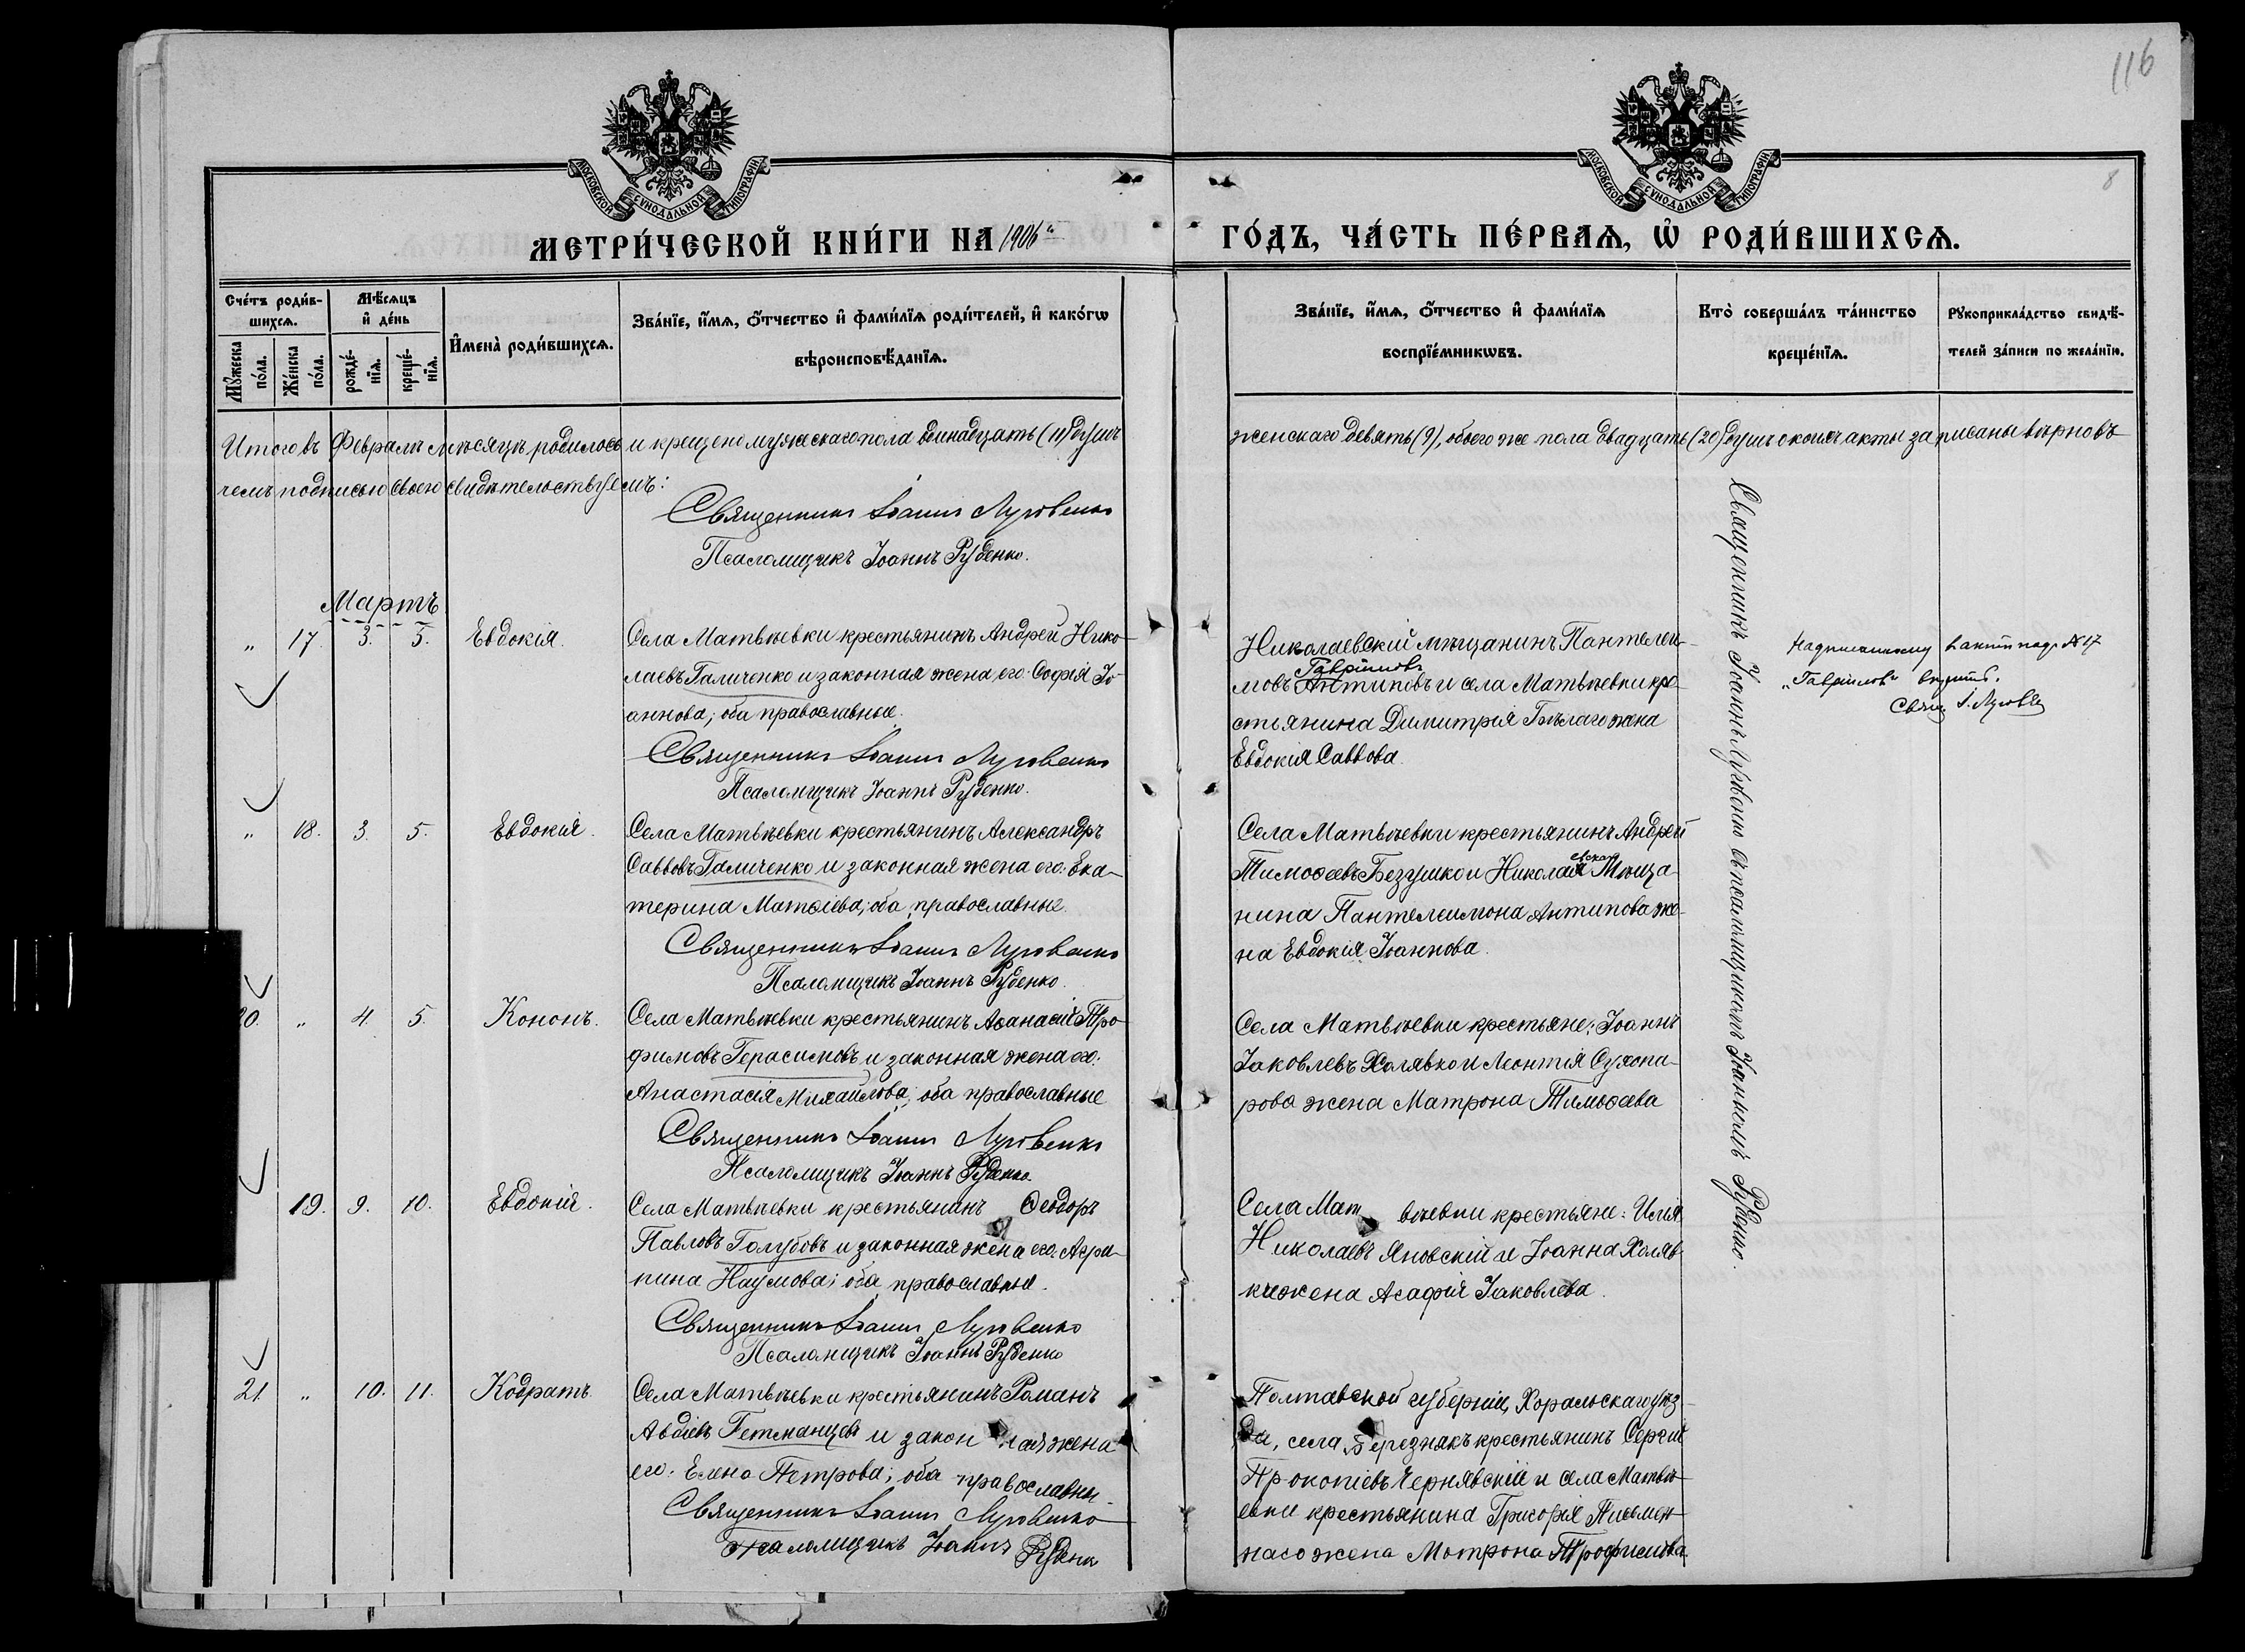 116
8
МОСКОВСКОЙ СУНОДАЛЬНОЙ ТИПОГРАФІИ
МОСКОВСКОЙ СУНОДАЛЬНОЙ ТИПОГРАФІИ
МЕТРИ́ЧЕСКОЙ КНИ́ГИ НА 1906й
ГО́ДЪ, ЧА́СТЬ ПЕ́РВАѦ, Ѡ҆ РОДИ́ВШИХСѦ.
Сче́тъ роди́в-
шихсѧ.
Мꙋ́жеска по́ла.
Же́нска по́ла.
Мѣ́сѧцъ
и҆ де́нь
рожде́-
нїѧ.
креще́-
нїѧ.
И҆мена̀ роди́вшихсѧ.
Зва́нїе, и҆́мѧ, ѻ҆́тчество и҆ фами́лїѧ роди́телей, и҆ како́гѡ
вѣроисповѣ́данїѧ.
Зва́нїе, и҆́мѧ, ѻ҆́тчество и҆ фами́лїѧ
воспрїе́мникѡвъ.
Кто̀ соверша́лъ та́инство
креще́нїѧ.
Рꙋкоприкла́дство свидѣ́-
телей за́писи по жела́нїю.
Итого въ Февралѣ мѣсяцѣ родилось и крещено мужескаго пола одинадцать (11) душъ
женскаго девять (9), обоего же пола двадцать (20) душъ о коихъ акты записаны вѣрно въ
чемъ подписью своею свидѣтельствуемъ:
Священникъ Іоаннъ Луговенко
Псаломщикъ Іоаннъ Руденко.
Мартъ
" 17. 3. 5. Евдокія.
Села Матвѣевки крестьянинъ Андрей Нико-
лаевъ Галиченко и законная жена его: Софія Іо-
аннова; оба православные.
Священникъ Іоаннъ Луговенко
Псаломщикъ Іоаннъ Руденко.
Николаевскій мѣщанинъ Пантелеи-
Гавріиловъ
мовъ Антиповъ и села Матвѣевки кре-
стьянина Димитрія Бѣлаго жена
Евдокія Саввова.
Надписанному въ актѣ подъ №17
"Гавріиловъ" вѣрить.
Свящ. І. Лугов
" 18. 3. 5. Евдокія.
Села Матвѣевки крестьянинъ Александръ
Саввовъ Галиченко и законная жена его: Ека-
терина Матѳіева; оба православные.
Священникъ Іоаннъ Луговенко
Псаломщикъ Іоаннъ Руденко.
Села Матвѣевки крестьянинъ Андрей
Тимоѳеевъ Безушко и Николаевскаго Мѣща-
нина Пантелеимона Антипова же-
на Евдокія Іоаннова.
20. " 4. 5. Кононъ.
Села Матвѣевки крестьянинъ Аѳанасій Тро-
фимовъ Герасимовъ и законная жена его:
Анастасія Михайлова; оба православные
Священникъ Іоаннъ Луговенко
Псаломщикъ Іоаннъ Руденко.
Села Матвѣевки крестьяне: Іоаннъ
Іаковлевъ Холявко и Леонтія Сухопа-
рова жена Матрона Тимоѳеева
19. 9. 10. Евдокія.
Села Матвѣевки крестьянинъ Ѳеодоръ
Павловъ Голубовъ и законная жена его: Агри-
пина Наумова; оба православные.
Священникъ Іоаннъ Луговенко
Псаломщикъ Іоаннъ Руденко
Села Матвѣевки крестьяне: Илія
Николаевъ Яновскій и Іоанна Холяв-
ки жена Агафія Іаковлева.
21 " 10. 11. Кодратъ.
Села Матвѣевки крестьянинъ Романъ
Авдіевъ Гетманцевъ и закон ная жена
его: Елена Петрова; оба православны-
Священникъ Іоаннъ Луговенко
Псаломщикъ Іоаннъ Руденк
Полтавской губерніи, Хорольскаго уѣз-
да, села Березнякъ крестьянинъ Сергій
Прокопіевъ Чернявскій и села Матвѣ-
евки крестьянина Григорія Письмен-
наго жена Мотрона Трофимова
Священникъ Іоаннъ Луговенко съ псаломщикомъ Іоанномъ Руденко.